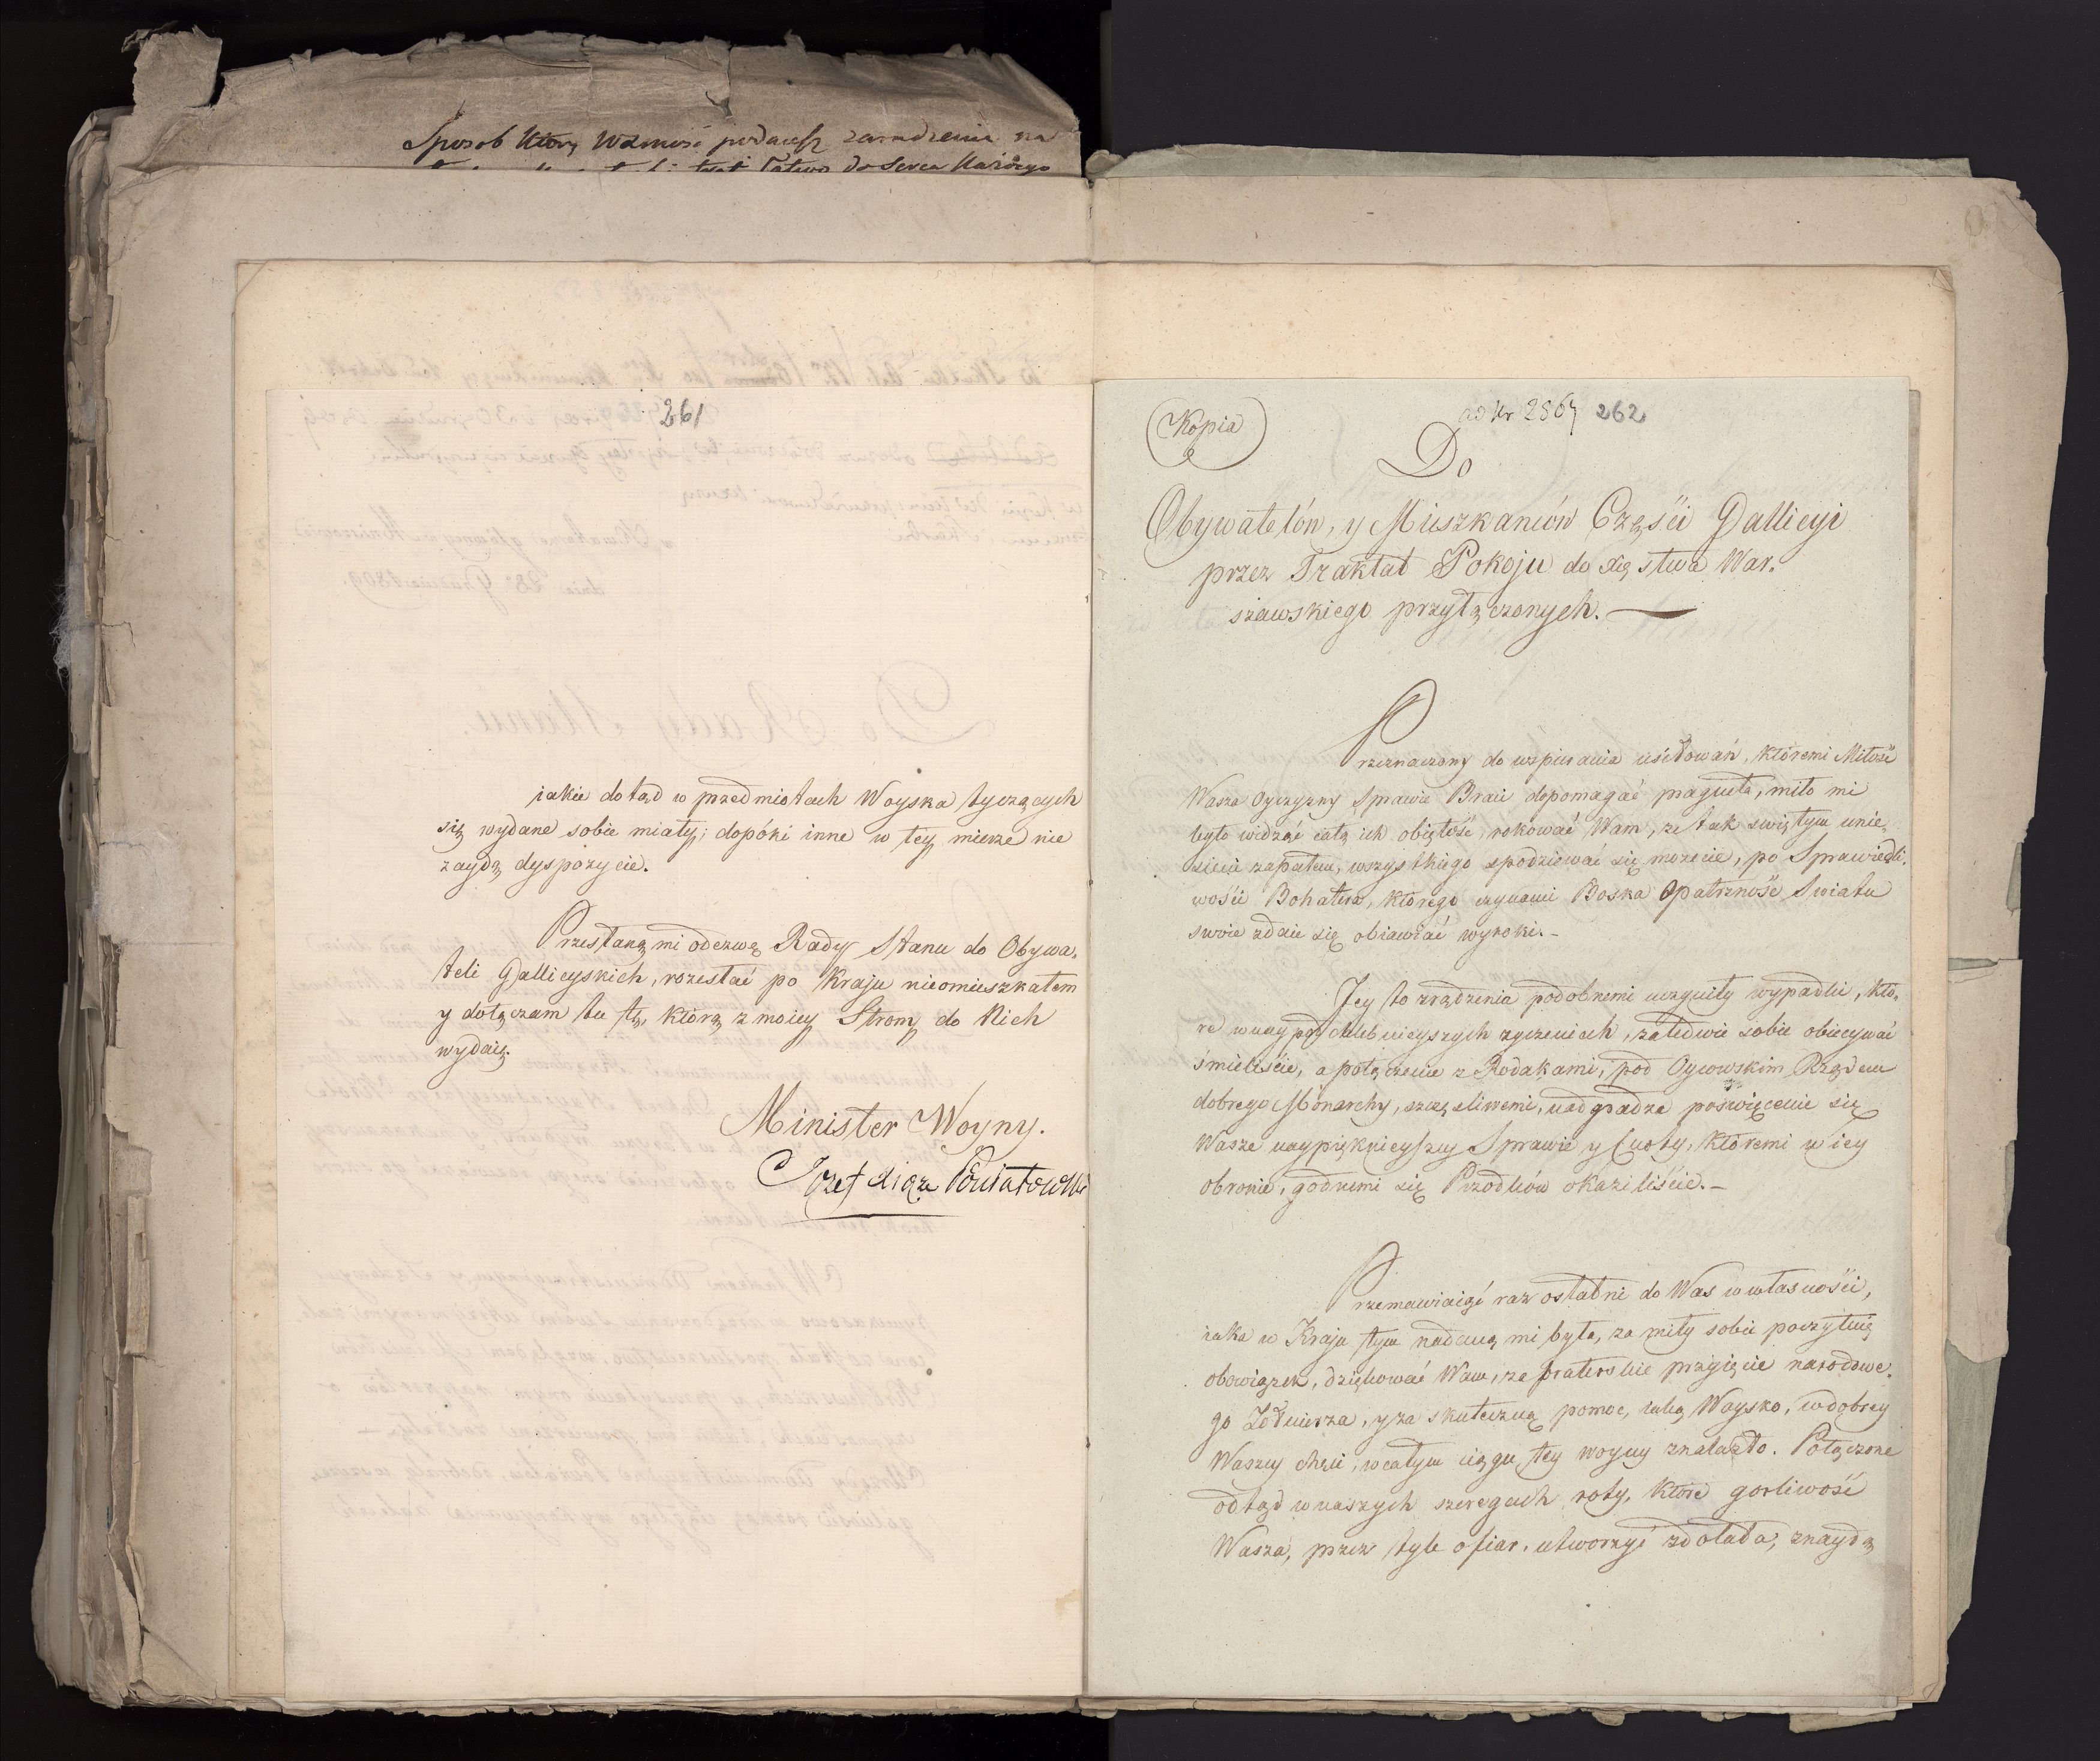 Sposob ktory Wzmosi podaiesz zaradzenia na
łatwo do Serca każdego
261
iakie dotąd w przedmiotach Woyska tyczących
się wydane sobie miały; dopóki inne w téy mierze nie
zaydą dyspozycie.
Przesłaną mi odezwę Rady Stanu do Obywa,
teli Gallicyskich, rozesłać po Kraju nieomieszkałem
y dołączam tu tę, którą z moiey Strony do Nich
wydaię.
Minister Woyny.
Jozef Xiąże Poniatowski
Kopia
ad Nr 2867 262
Do
Obywatelów, y Mieszkańców Części Gallicyi
przez Traktat Pokoju do Xięstwa War.
szawskiego przyłączonych.
Przeznaczony do wspierania usiłowań, któremi Miłość
Wasza Oyczyzny Sprawie Braci dopomagać pragnęła, miło mi
było widząc całą ich obiętość, rokować Wam, że tak świętym unie,
sieni zapałem, wszystkiego spodziewać się możecie, po Sprawiedli,
wości Bohatera, którego czynami Boska Opatrzność Swiatu
swoie zdaie się obiawiać wyroki. –
Jey to zrządzenia podobnemi uczyniły wypadki, któ,
re w nay pochlebnieyszych życzeniach, zaledwie sobie obiecywać
śmieliście, a połączenie z Rodakami, pod Oycowskim Rządem
dobrego Monarchy, szczęśliwemi, nadgradza poświęcenie się
Wasze naypięknieyszey Sprawie y Cnoty, któremi w iey
obronie, godnemi się Przodków okazaliście. –
Przemawiaiąc raz ostatni do Was w własności,
iaka w Kraju tym nadaną mi była, za miły sobie poczytuię
obowiązek, dziękować Wam, za braterskie przyięcie narodowe,
go Żołnierza, y za skuteczną pomoc, iaką Woysko, w dobrey
Waszey chęci, w całym ciągu tey woyny znalazło. Połączone
odtąd w naszych szeregach roty, które gorliwość
Wasza, przez tyle ofiar, utworzyć zdołała, znaydą